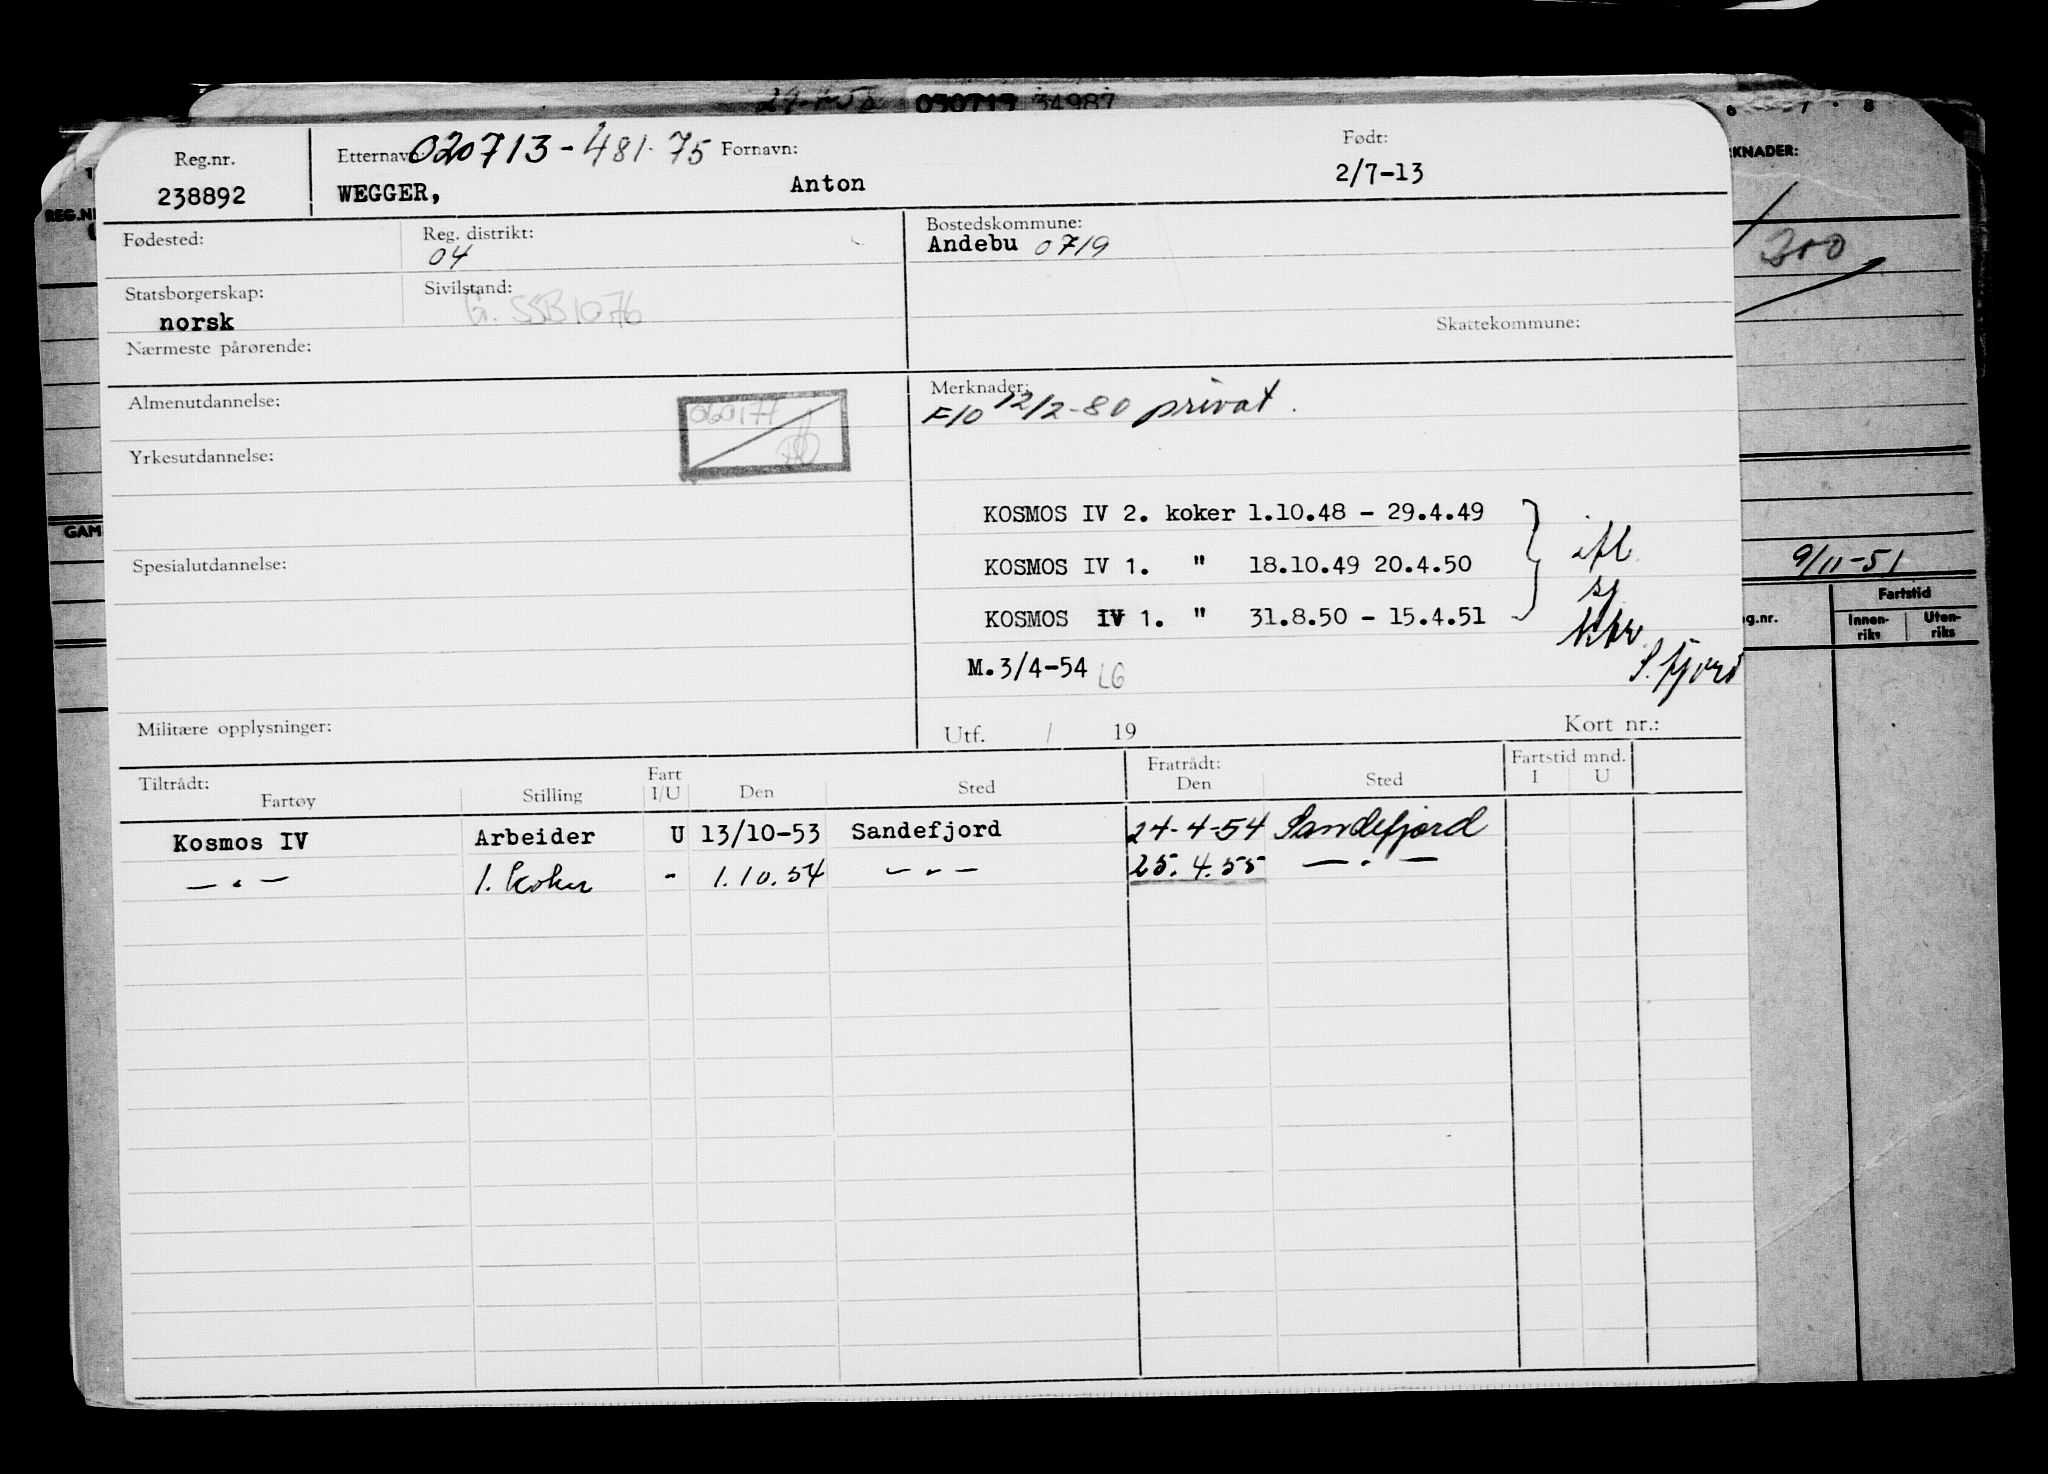 29-7-58 030713 34987
6 7 · 8
Reg.nr. 238892
Etternavn: 020713-481.75 Fornavn:
WEGGER, Anton
Født: 2/7-13
RKNADER:
REG.N
300
Fødested:
Reg. distrikt: 04
Bostedskommune:
Andebu 0719
Statsborgerskap: norsk
Sivilstand: G. SSB 1076
Skattekommune:
Nærmeste pårørende:
Almenutdannelse:
060177
Yrkesutdannelse:
Spesialutdannelse:
Militære opplysninger:
Merknader:
F10 12/2-80 privat.
KOSMOS IV 2. koker 1.10.48 - 29.4.49
KOSMOS IV 1. " 18.10.49 20.4.50
KOSMOS IV 1. " 31.8.50 - 15.4.51
ifl.
sj
ktr.
S.fjord
M.3/4-54 LG
Utf. / 19 Kort nr.:
GAM
9/11-51
Fartstid
g.nr. Innen-riks Uten-riks
Tiltrådt: Fratrådt: Fartstid mnd.
Fartøy Stilling Fart I/U Den Sted Den Sted I U
Kosmos IV Arbeider U 13/10-53 Sandefjord 24-4-54 Sandefjord
— " — 1. koker - 1.10.54 — " — 25.4.55 — " —